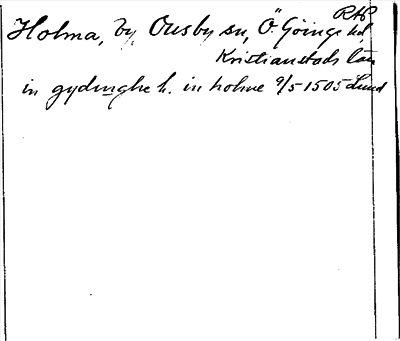 RAP
Holma, by, Ousby sn, Ö. Göinge hd,
Kristianstads län
in gydinghe h. in holme 9/5 1505 Lund